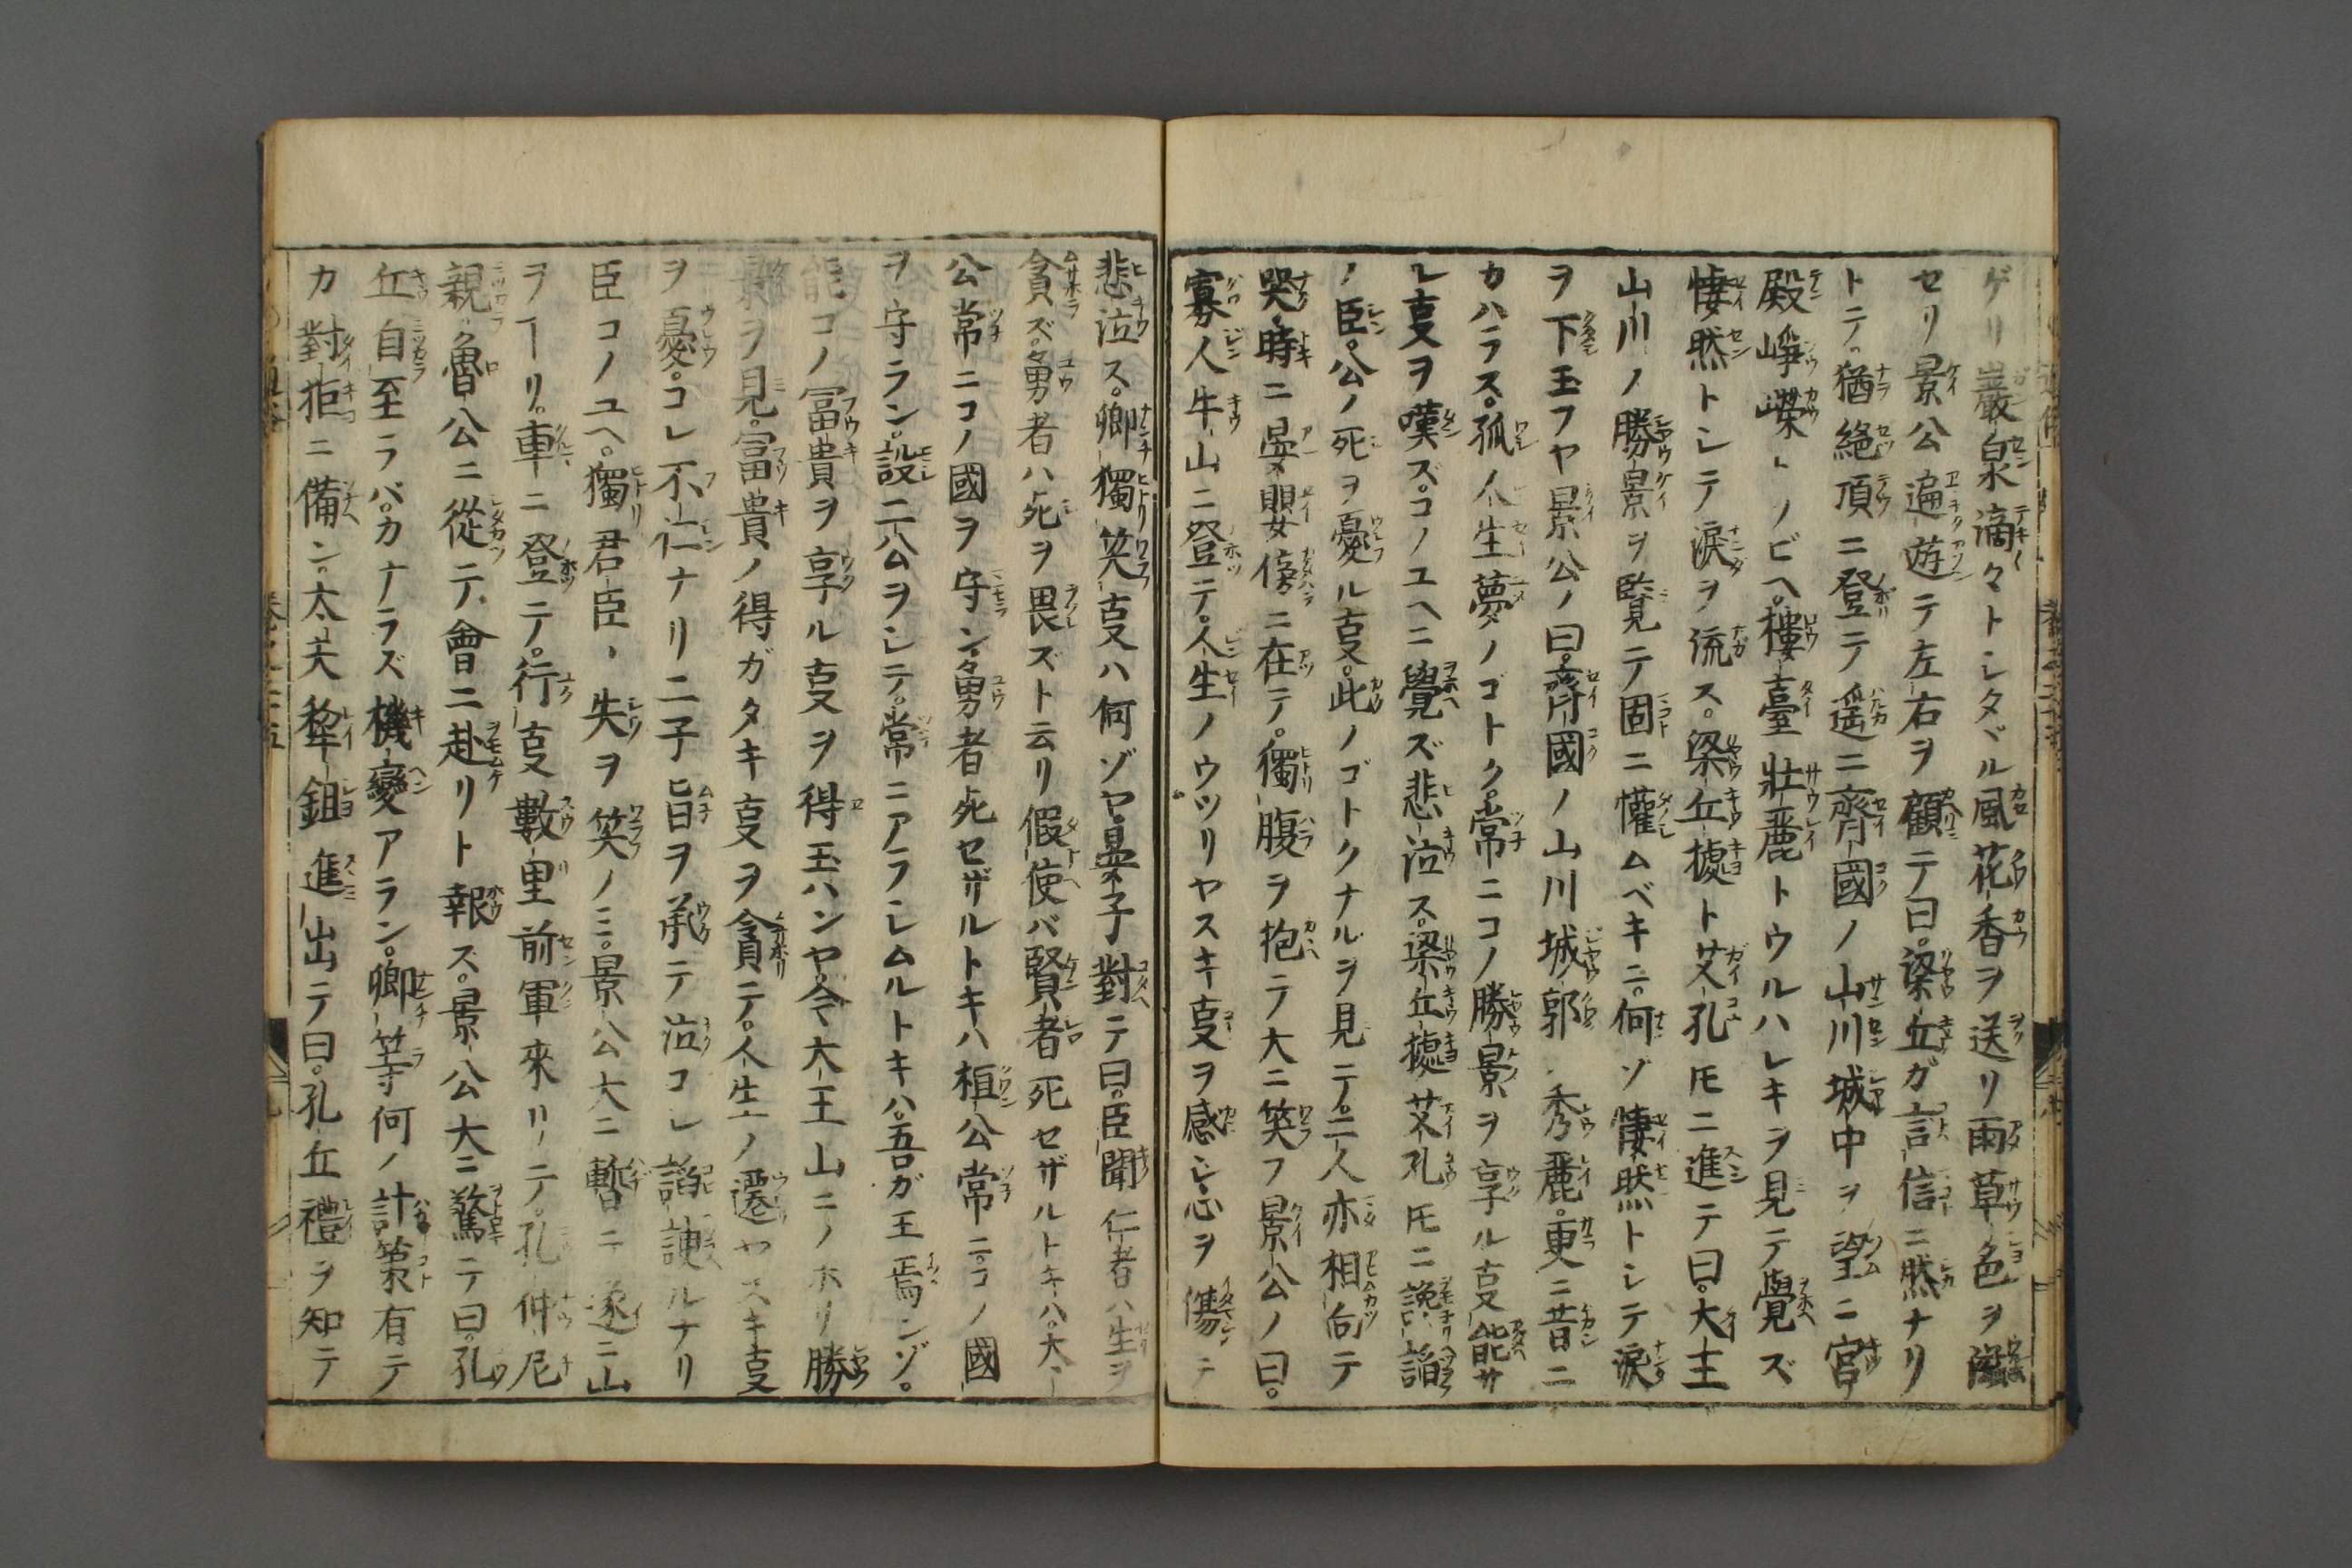 ゲリ巖泉滴々トシタヾル風花香ヲ送リ雨草色ヲ滋
セリ景公遍遊テ左右ヲ顧テ曰。梁丘ガ言信ニ然ナリ
トテ。猶絶頂ニ登テ遥ニ齊國ノ山川城中ヲ望ニ宮
殿崢嶸トソビヘ。樓臺壯麗トウルハレキヲ見テ覺ズ
悽然トシテ涙ヲ流ス。梁丘據ト艾孔ト𪜈ニ進テ曰。大王
山川ノ勝景ヲ覽テ固ニ懽ムベキニ。何ゾ悽然トシテ涙
ヲ下玉フヤ景公ノ曰。齊國ノ山川城郭秀麗。更ニ昔ニ
カハラス。孤人生夢ノゴトク。常ニコノ勝景ヲ享ル㕝能サ
レ㕝ヲ嘆ズ。コノユヘニ覺ズ悲泣ス。梁丘據艾孔𪜈ニ讒諂
ノ臣。公ノ死ヲ憂ル㕝。此ノゴトクナルヲ見テ。二人亦相向テ
哭。時ニ晏嬰傍ニ在テ。獨腹ヲ抱テ大ニ笑フ景公ノ曰。
寡人牛山ニ登テ。人生ノウツリヤスキ㕝ヲ感シ心ヲ傷テ
悲泣ス。卿獨笑㕝ハ何ゾヤ。晏子對テ曰。臣聞仁者ハ生ヲ
貪ズ。勇者ハ死ヲ畏ズト云リ假使バ賢者死セザルトキハ。大
公常ニコノ國ヲ守ン。勇者死セザルトキハ桓公常ニ。コノ國
ヲ守ラン。設二公ヲシテ。常ニアラシムルトキハ。吾ガ王焉ンゾ。
能コノ冨貴ヲ享ル㕝ヲ得玉ハンヤ。今大王山ニノホリ勝
景ヲ見。冨貴ノ得ガタキ㕝ヲ貪テ。人生ノ遷ヤスキ㕝
ヲ憂。コレ不仁ナリ二子旨ヲ承テ泣コレ諂諛ルナリ
臣コノユヘ。獨君臣ノ失ヲ笑ノミ。景公大ニ慙ニ遂ニ山
ヲ下リ。車ニ登テ。行㕝數里前軍來リテ。孔仲尼
親魯公ニ從テ。會ニ赴リト報ス。景公大ニ驚テ曰。孔
丘自至ラバ。カナラズ機變アラン。卿等何ノ計策有テ
カ對拒ニ備ン。太夫犂鉏進出テ曰。孔丘禮ヲ知テ